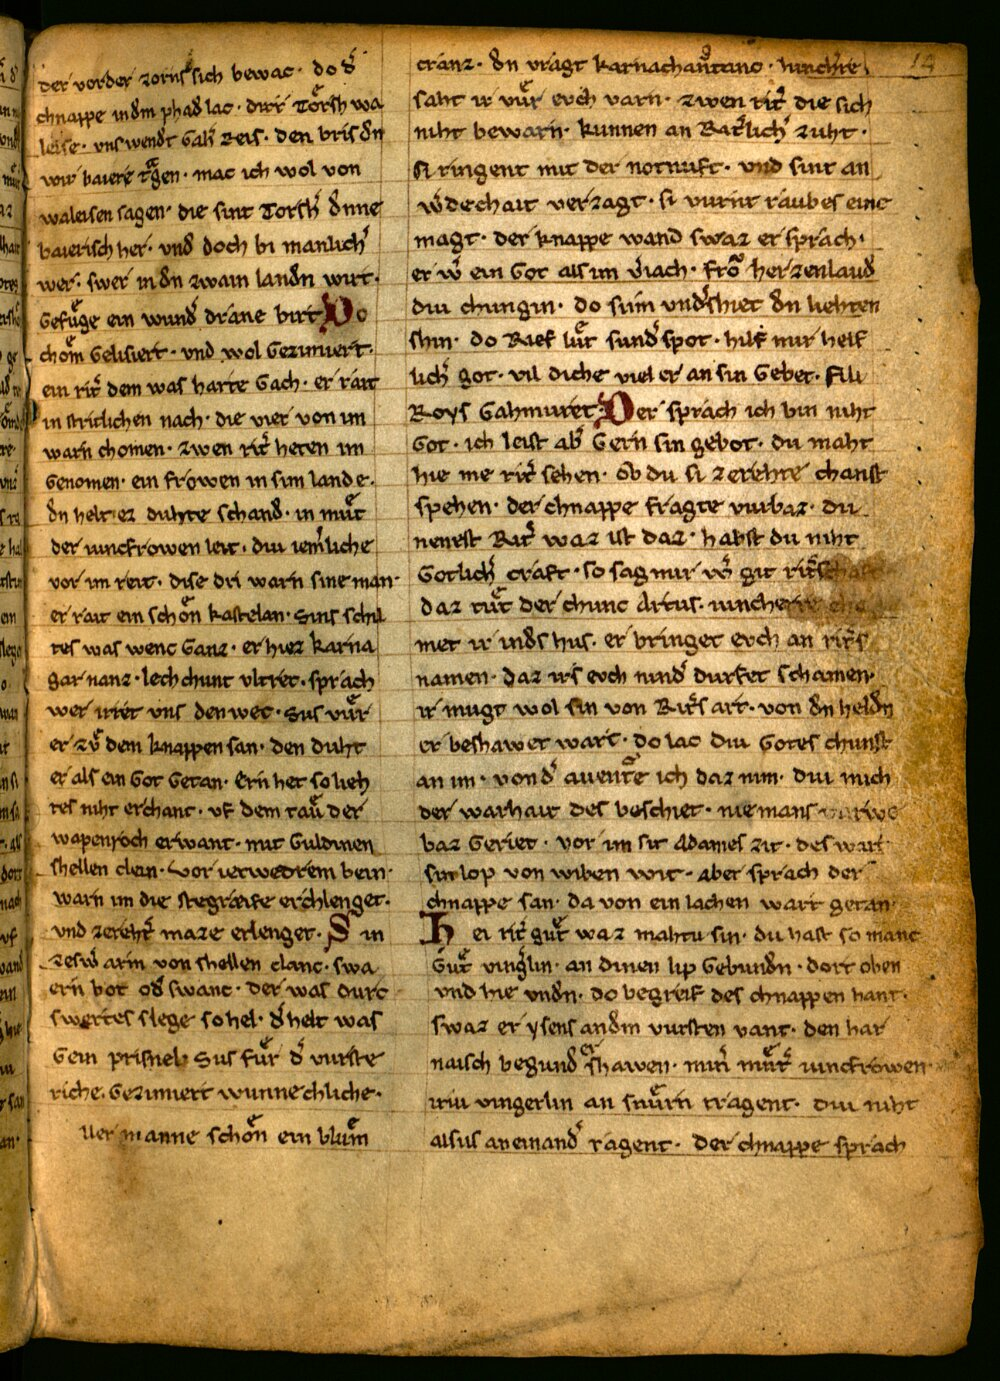 14
der vorder zorns sich bewac · do d͛
chnappe indm phad lac · dirr toͤrsh wa
leise · vns wendt gah͛ reis · den bris dn
wir baiere tᵃgen · mac ich wol von
waleisen sagen · die sint torsh͛ dnne
baierisch her · vnd doch bi manlich͛
wer · swer in dn zwain landn wirt ·
gefuͤge ein wund͛ drane birt Do
choͤm gelisiert · vnd wol gezimiert ·
ein rit͛ dem was harte gach · er rait
in stritlichen nach · die vier von im
warn chomen · zwen rit͛ heten im
genomen · ein frowen in sim lande ·
dn helt ez duhte schand · in muͤt
der iuncfrowen leit · diu iem͛liche
vor im reit · dise dri warn sine man ·
er rait ein schoͤn kastelan · sins schil
tes was wenc ganz · er hiez karna
garnanz · lech chunt vltret · sprach
wer irret vns den wec · sus vuͤr
er zv͛ dem knappen san · den duht
er als ein got getan · ern het so lieh
tes niht erchant · vf dem tauͤ der
wapenroch erwant · mit guldinen
shellen clein · vor ietwedrem bein ·
warn im die stegraeife erchlenget ·
vnd zereht͛ maze erlenget · S in
zesw͛ arm von shellen clanc · swa
ern bot od͛ swanc · der was durc
swertes slege so hel · d͛ helt was
gein prise snel · sus fuͤr d͛ vurste
riche · gezimiert wunnechliche ·
Aller manne schoͤn ein bluͤm
cranz · dn vragt karnachauͤtanc · iunch͛re
saht ir vuͤr evch varn · zwen rit͛ die sich
niht bewarn · kunnen an Rat͛lich͛ zuht ·
si ringent mit der notnuft · vnd sint an
w͛dechait verzagt · si vurnt raubes eine
magt · der knappe wand swaz er sprach ·
er w͛ ein got als im v͛iach · froͮ herzenlaud
diu chungin · do si im vnd͛shiet dn liehten
shin · do Rief luͤt sund͛ spot · hilf mir helf
lich͛ got · vil diche viel er an sin gebet · fili
Roys Gahmuret · Der sprach ich bin niht
got · ich leist ab͛ gern sin gebot · du maht
hie me rit͛ sehen · ob du si zerehte chanst
spehen · der chnappe fragte vurbaz · du
nenest Rit͛ waz ist daz · habst du niht
gotlich͛ craft · so sag mir w͛ git rit͛schaft
daz tuͤt der chunc Artus · iuncherre
met ir inds hus · er bringet evch an rit͛s
namen · daz irs evch nimd͛ durfet schamen ·
ir mugt wol sin von Rit͛s art · von dn heldn
er beshawet wart · do lac diu gotes chunst
an im · von d͛ auentᵉe ich daz nim · diu mich
der warhait des beschiet · niemans varwe
baz geriet · vor im sit Adames zit · des wart
sin lop von wiben wit · aber sprach der
chnappe san · da von ein lachen wart getan ·
H ei rit͛ guͤt waz mahtu sin · du hast so manc
guͤt ving͛lin · an dinen lip gebundn · dort oben
vnd hie vndn · do begreif des chnappen hant ·
swaz er ysens andm vursten vant · den har
naisch begund ershawen · min͛ muͤt͛ iuncfrowen
iriu vingerlin an snuͤrn tragent · diu niht
alsus an einand͛ ragent · der chnappe sprach